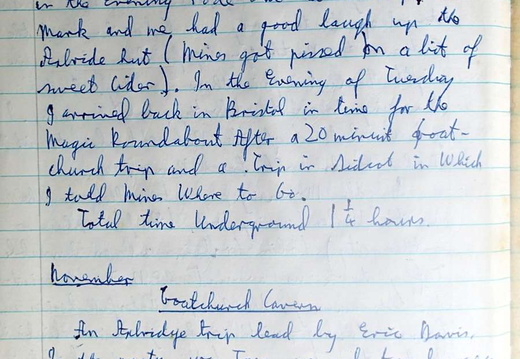 in the evening
Mark and me had a good laugh up the
Axbride hut (Mines got pissed on a bit of
sweet Cider). In the Evening of Tuesday
I arrived back in Bristol in time for the
Magic Roundabout After a 20 minuit goat-
church trip and a Trip in Sidcot in Which
I told Mines Where to Go.
Total time Underground 1 1/4 hours.
November
Goatchurch Cavern
An Axbridge trip lead by Eric Davis.